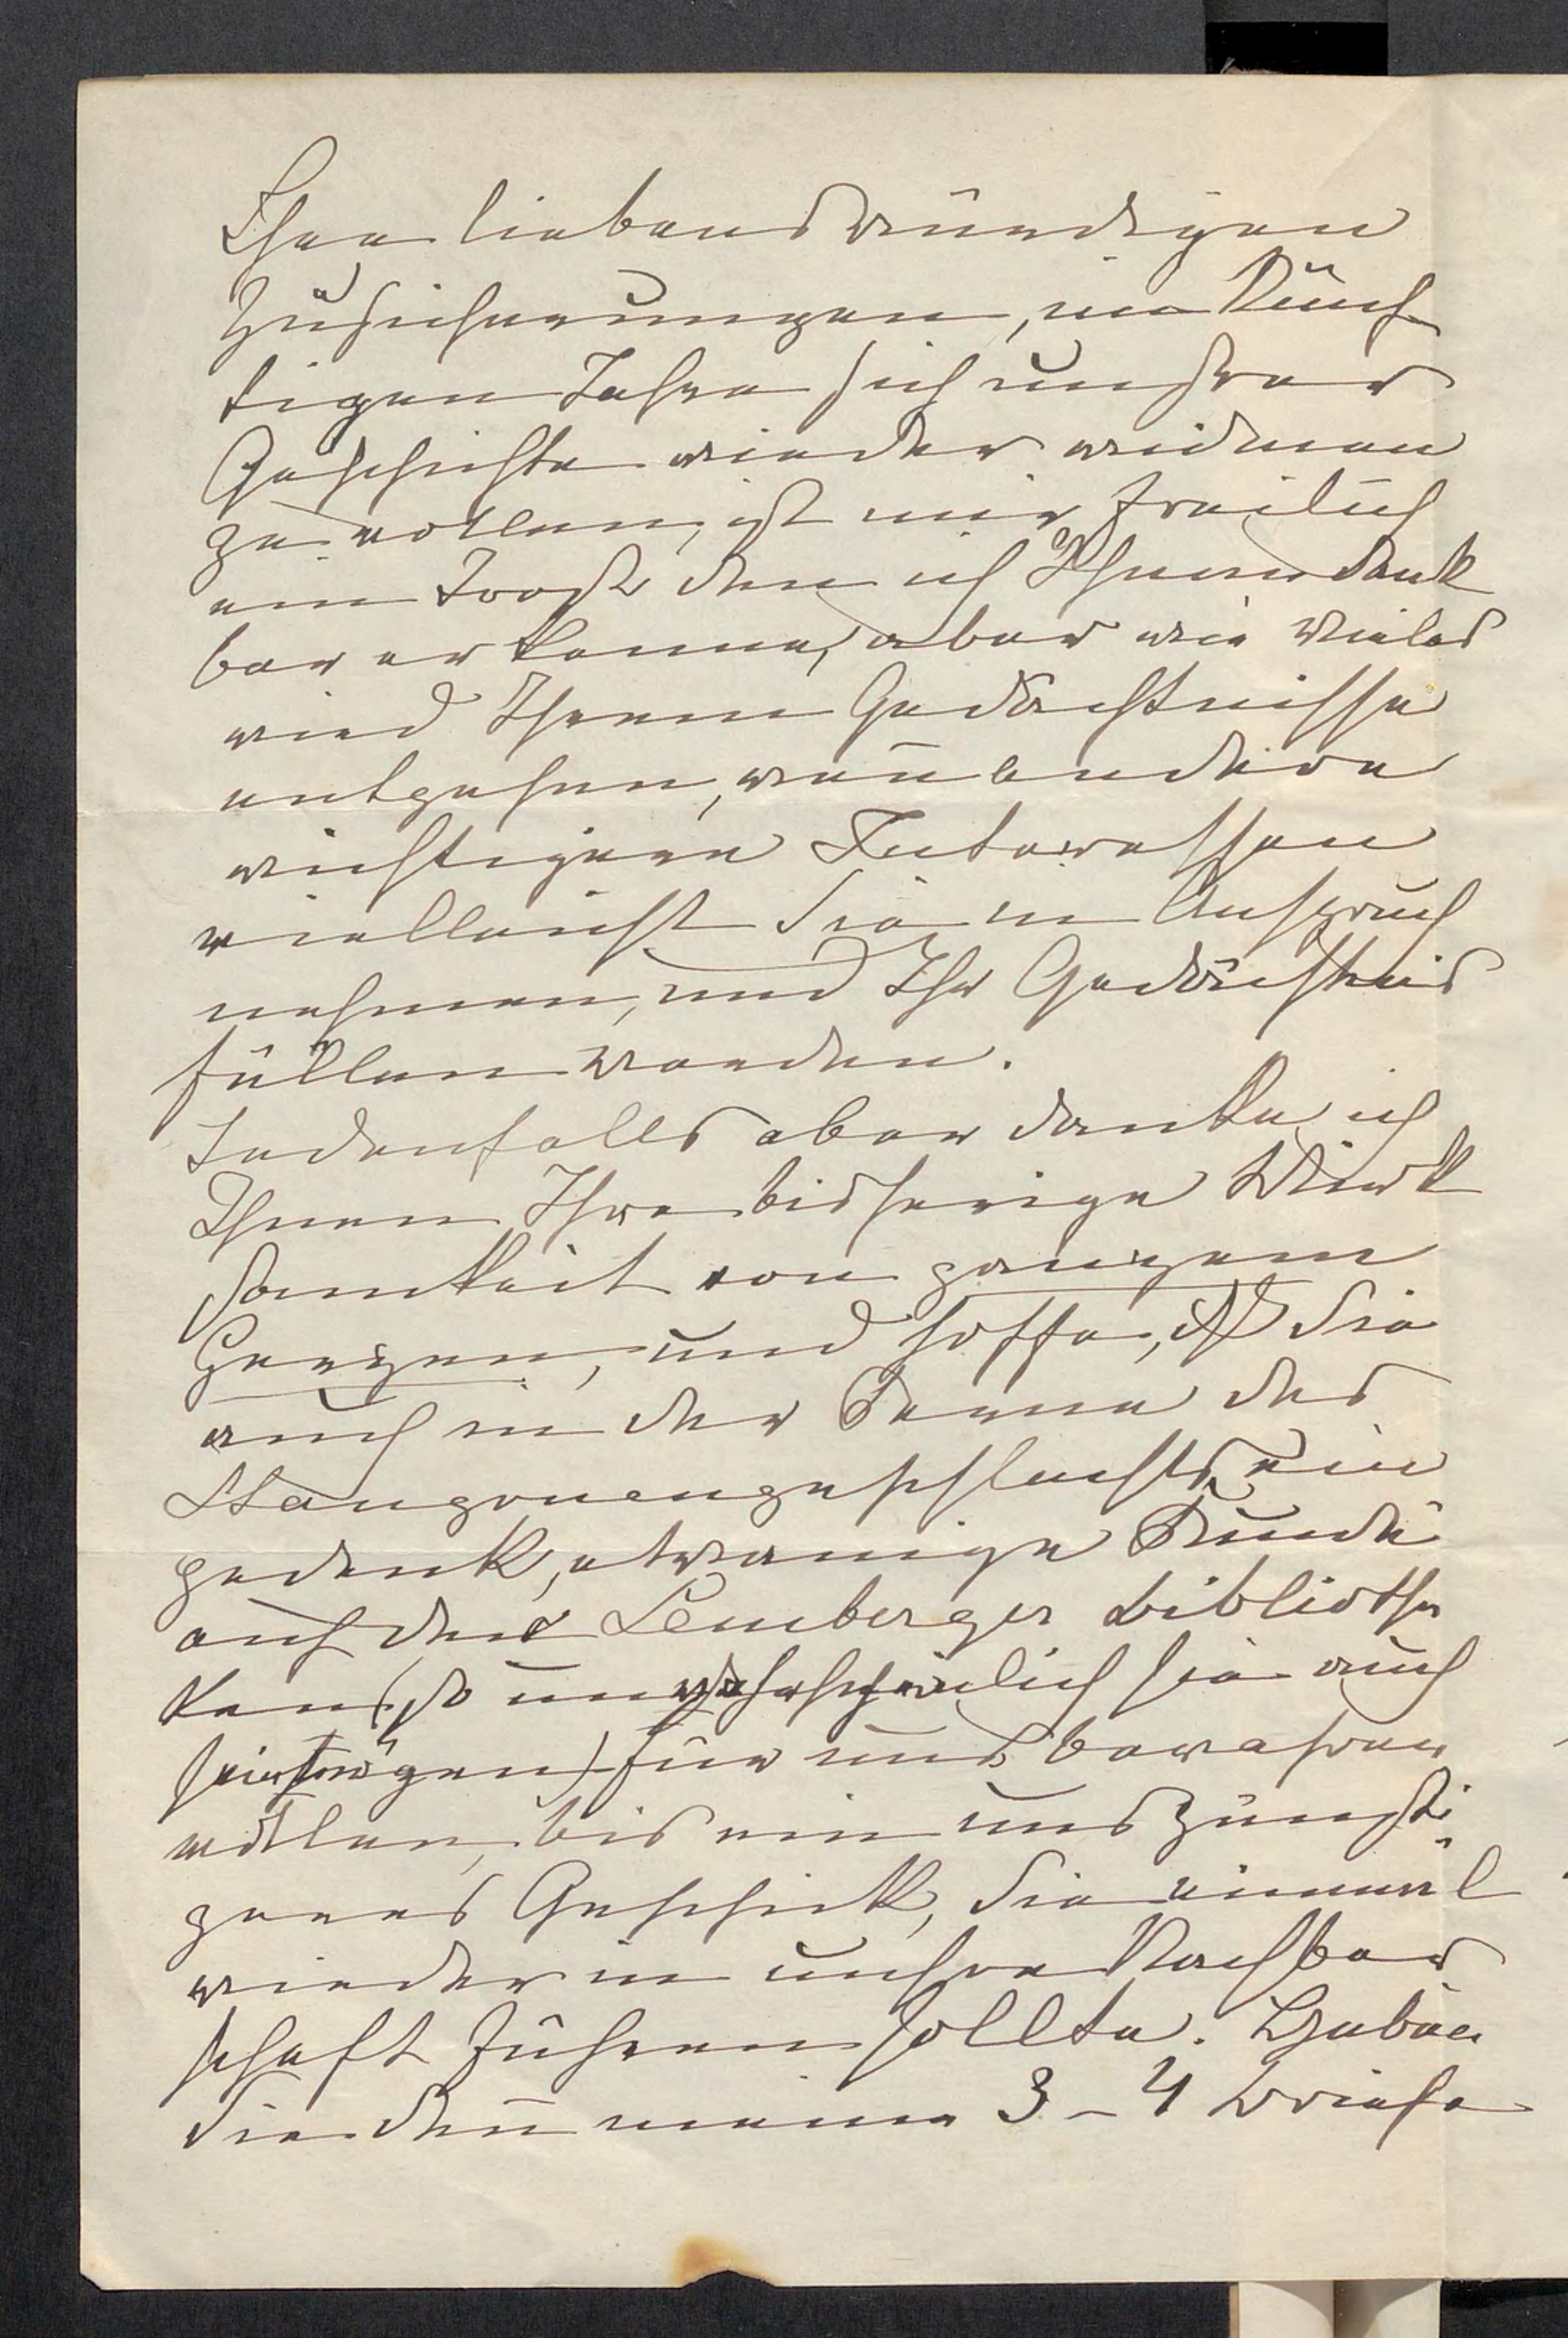 Ihre liebenswürdigen
Zusicherungen, im künf-
tigen Jahre sich unsrer
Geschichte wieder widmen
zu wollen, ist mir freilich
ein Trost den ich Ihnen dank
bar erkenne, aber wie Vieles
wird Ihrem Gedächtnisse
entgehen, wen̄ andere
wichtigere Interessen
vielleicht Sie in Anspruch
nehmen, und Ihr Gedächtnis
füllen werden.
Jedenfalls aber danke ich
Ihnen Ihre bisherige Wirk
samkeit von ganzem
Herzen, und hoffe, daß Sie
auch in der Ferne des
Stangonengeschlechts ein
gedenk, etwanige Funde
auf den Lemberger Bibliothe
ken (so unwahrscheinlich sie auch
sein mögen) für uns bewahren
wollen, bis ein uns günsti
geres Geschick, Sie einmal
wieder in unsre Nachbar
schaft führen sollte. Haben
Sie den̄ meine 3 – 4 Briefe